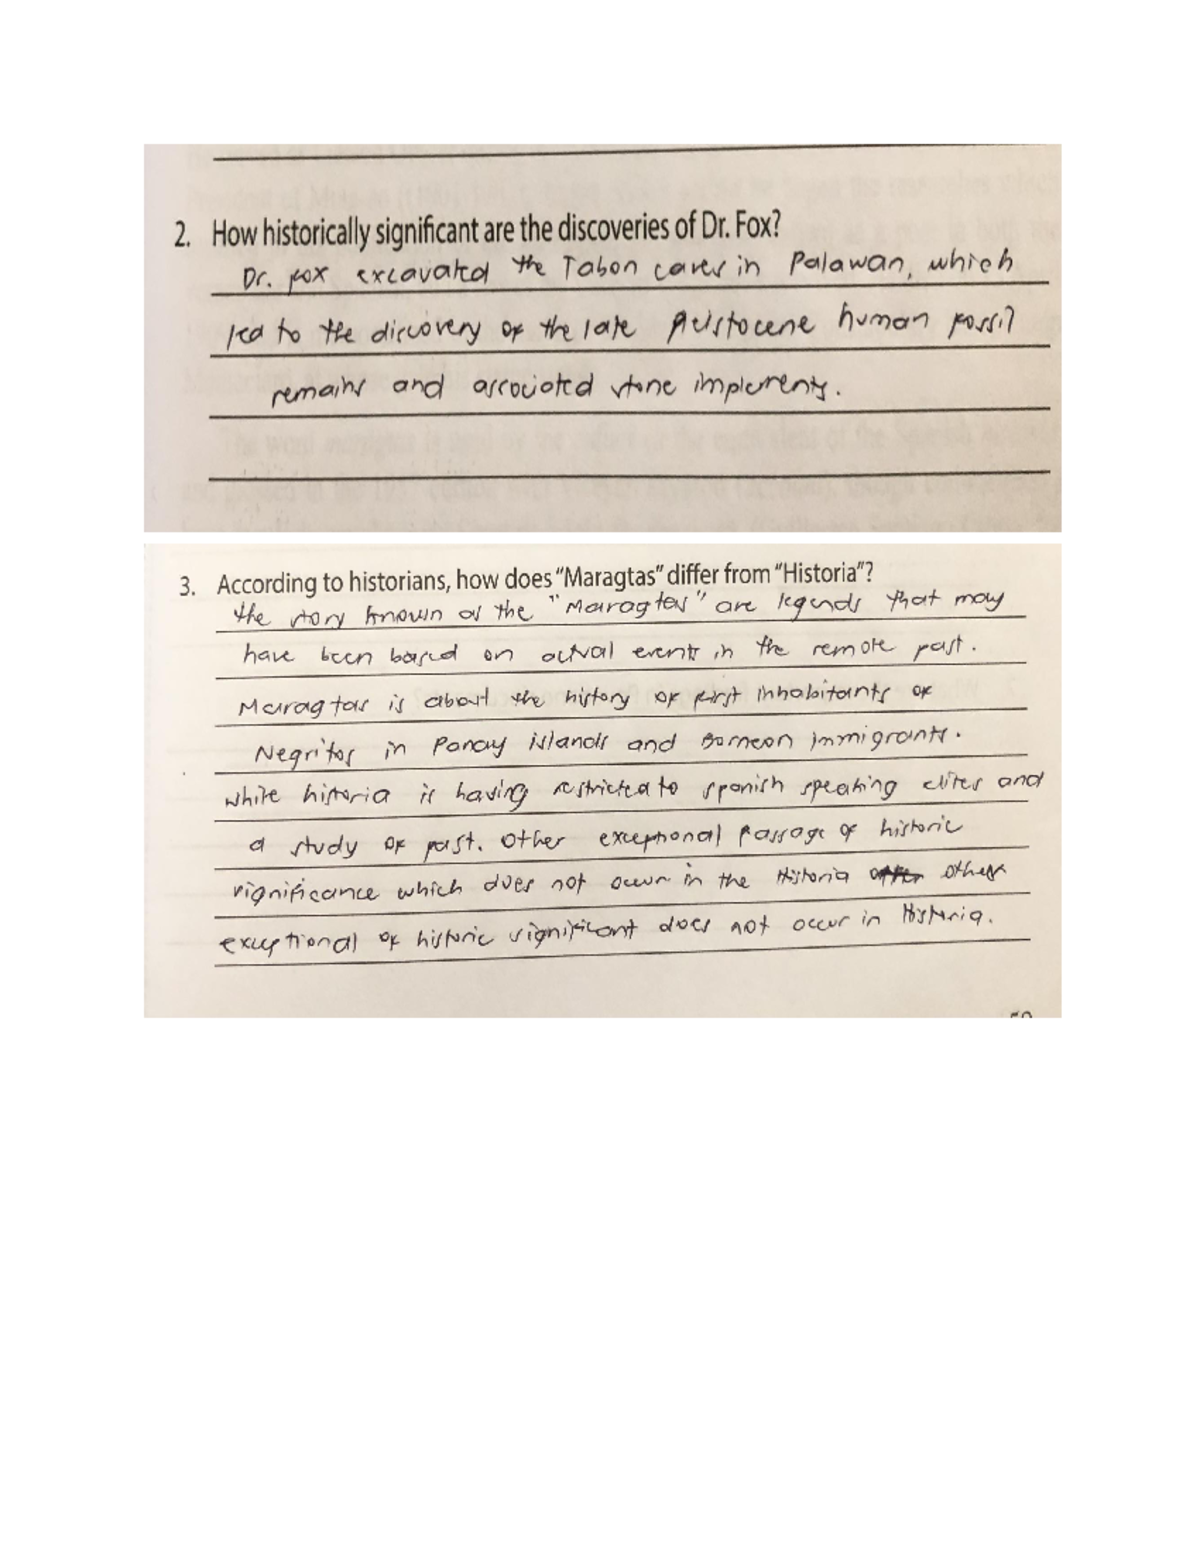 2. How historically significant are the discoveries of Dr. Fox?
Dr. Fox excavated the Tabon caves in Palawan, which
led to the discovery of the late Pleistocene human fossil
remains and associated stone implements.
3. According to historians, how does "Maragtas" differ from "Historia"?
the story known as the "Maragtas" are legends that may
have been based on actual events in the remote past.
Maragtas is about the history of first inhabitants of
Negritos in Panay islands and Bornean immigrants.
while historia is having restricted to spanish speaking elites and
a study of past. Other exceptional passage of historic
significance which does not occur in the Historia other
exceptional of historic significant does not occur in Historia.